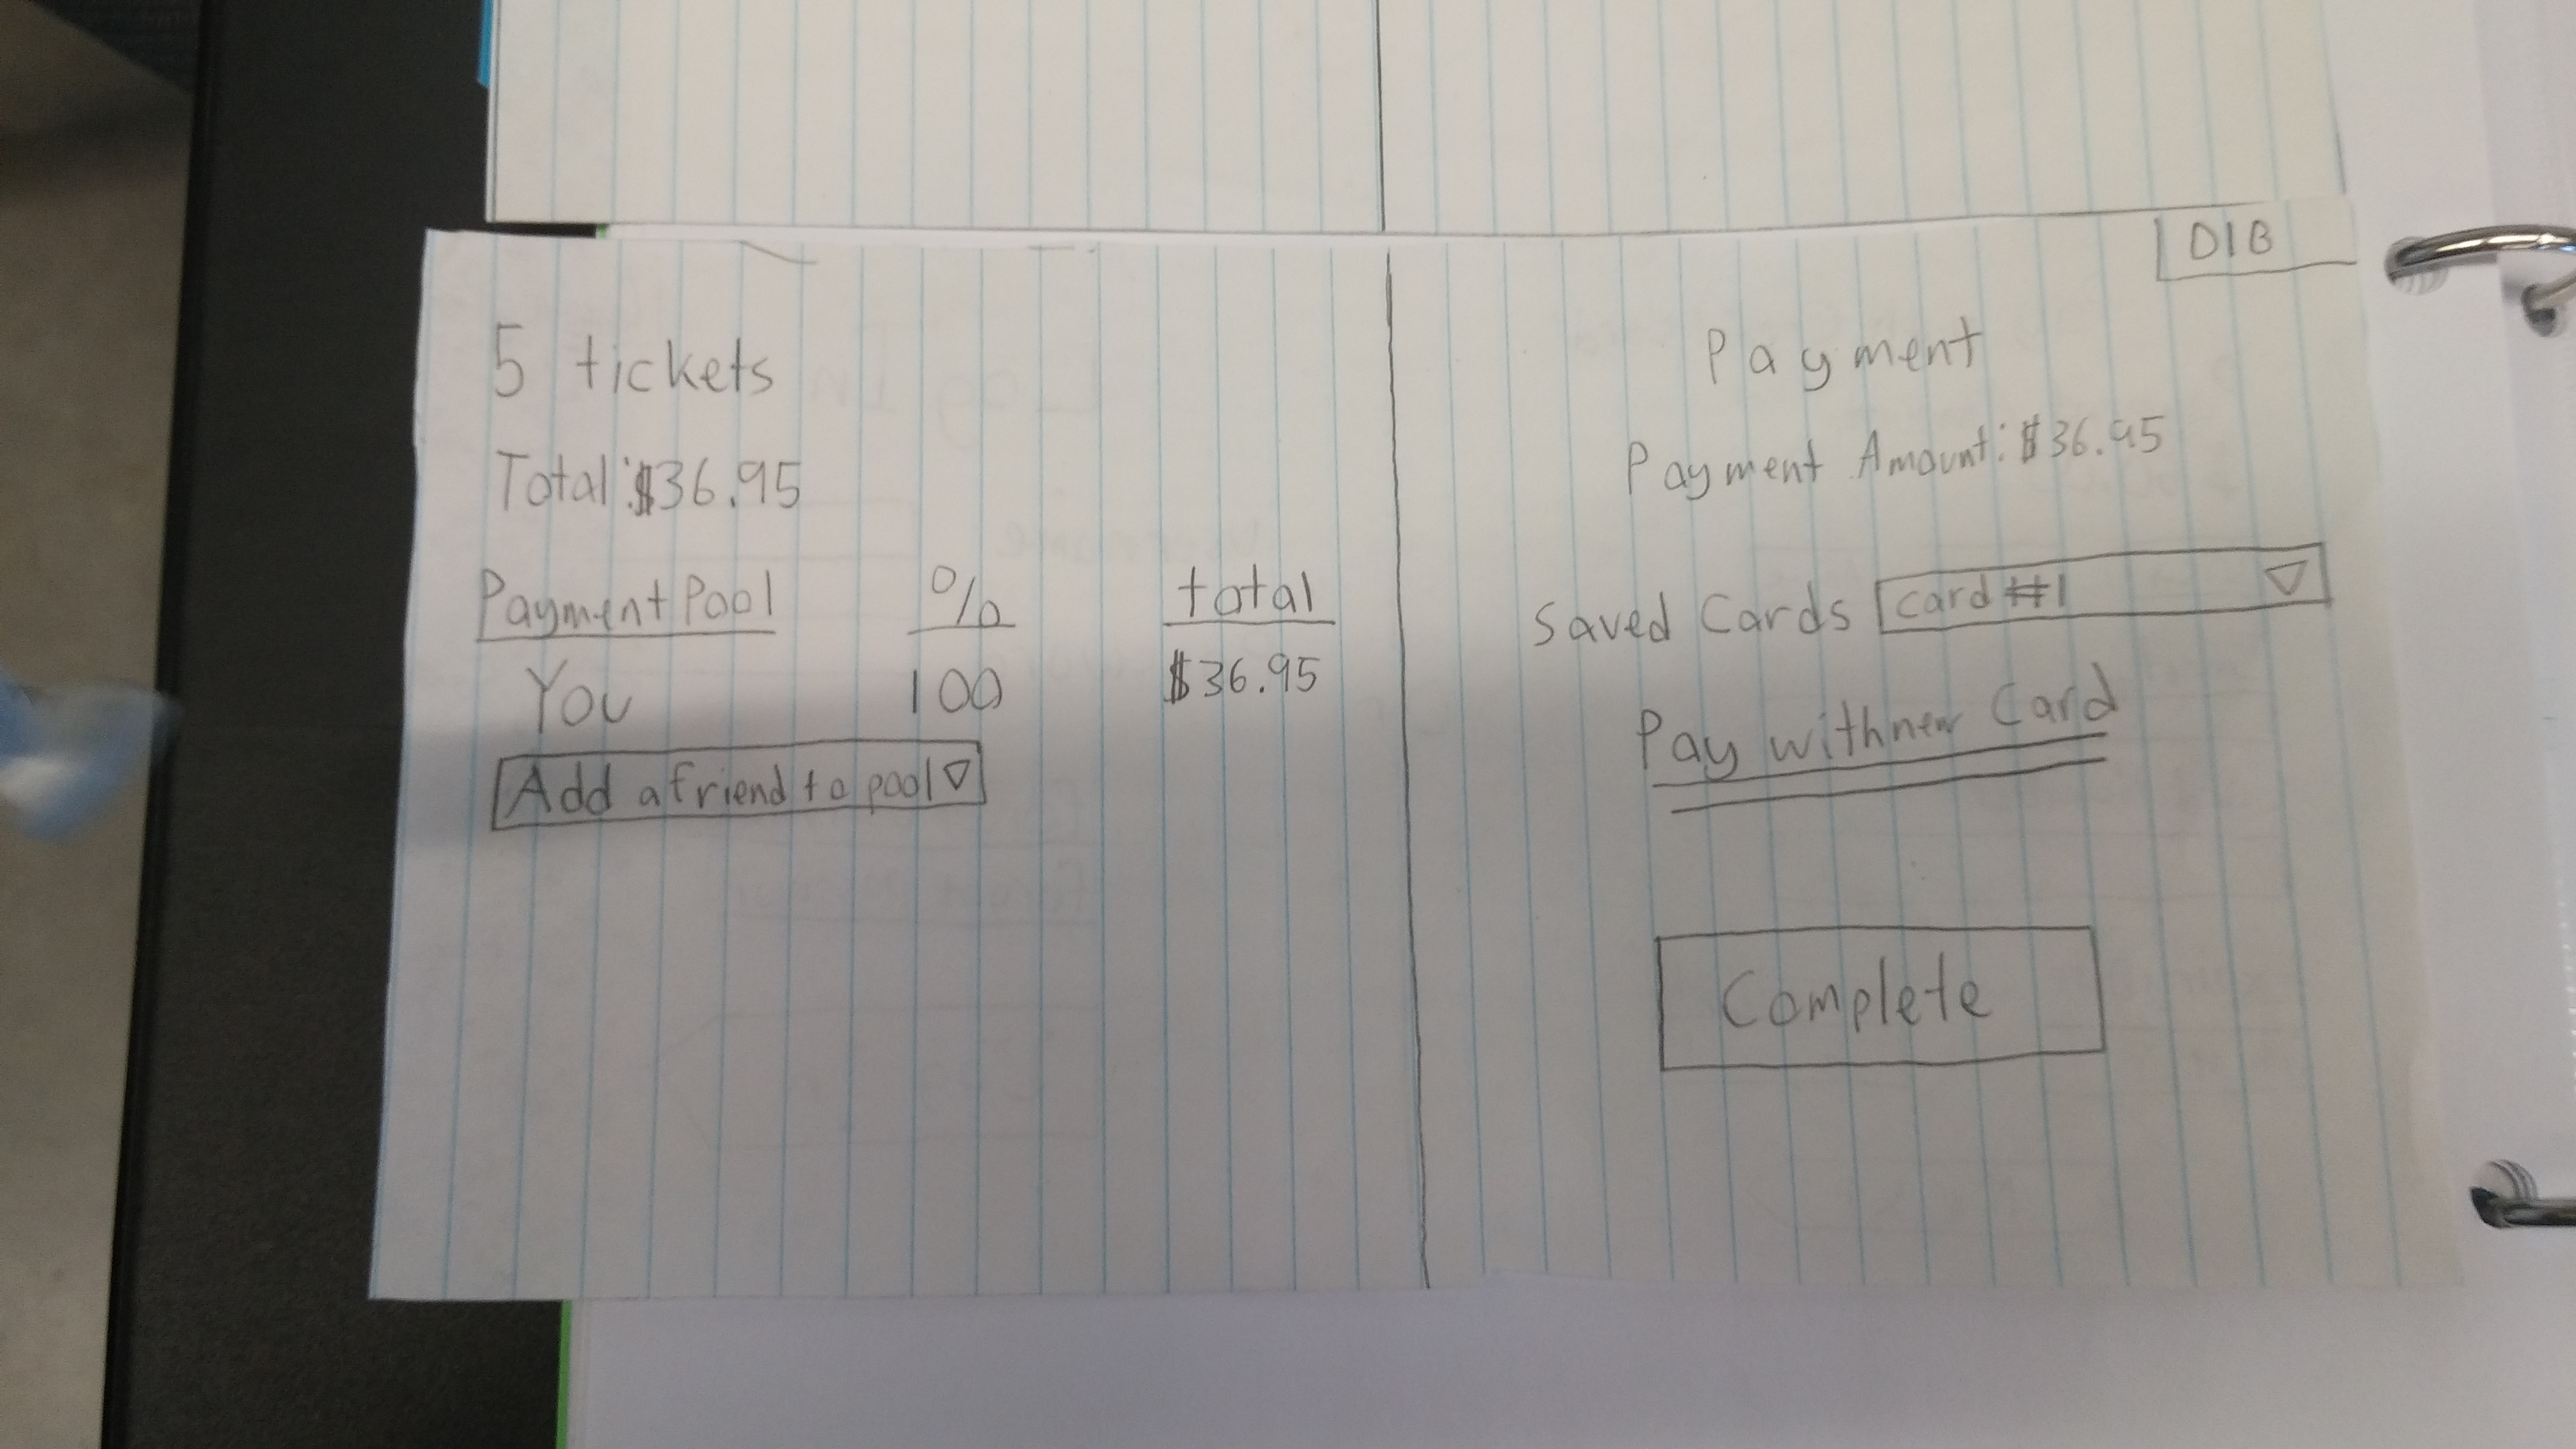 5 tickets
Total: $36.95
Payment Pool % total
You 100 $36.95
Add a friend to pool
Payment
Payment Amount: $36.95
Saved Cards card #1
Pay with new Card
Complete